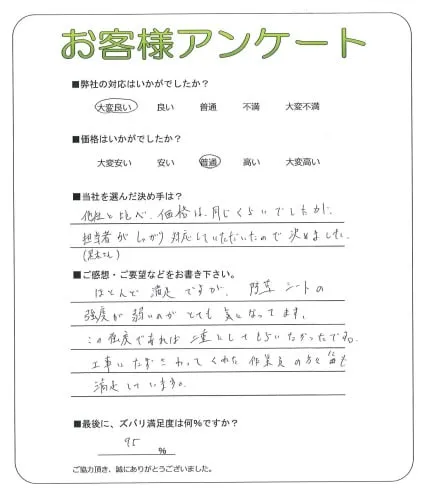 お客様アンケート
■弊社の対応はいかがでしたか?
大変良い 良い 普通 不満 大変不満
■価格はいかがでしたか?
大変安い 安い 普通 高い 大変高い
■当社を選んだ決め手は?
他社と比べ、価格は、同じくらいでしたが、
担当者がしっかり対応していただいたので決めました。
■ご感想・ご要望などをお書き下さい。
ほとんど満足ですが、防草シートの
強度が弱いのがとても気になってます。
この強度であれば二重としてもらいたかったです。
工事にたずさわってくれた作業員の方々
満足しています。
■最後に、ズバリ満足度は何%ですか?
95 %
ご協力頂き、誠にありがとうございました。